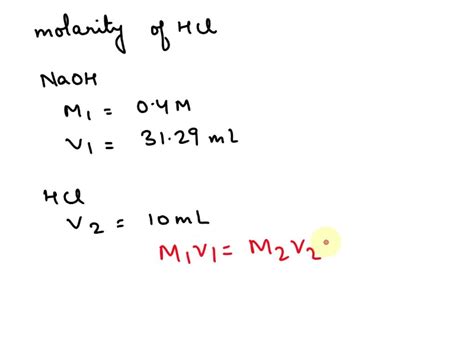 molarity of HCl
NaOH
M₁ = 0.4 M
V₁ = 31.29 mL
HCl
V₂ = 10 mL
M₁V₁ = M₂V₂